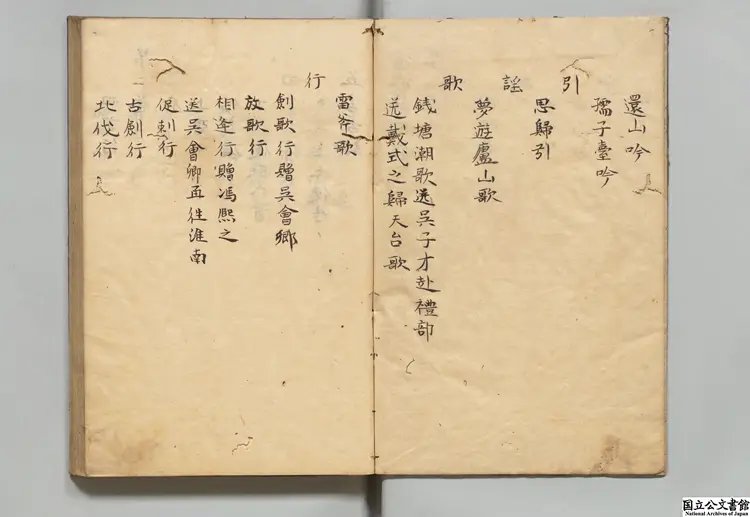 還山吟
孺子臺吟
引
思歸引
謡
夢遊廬山歌
歌
錢塘潮歌送吳子才赴禮部
送戴式之歸天台歌
雷斧歌
行
劍歌行贈吳會卿
放歌行
相逢行贈馮熙之
送吳會卿再往淮南
促刺行
古劍行
北伐行
国立公文書館
National Archives of Japan